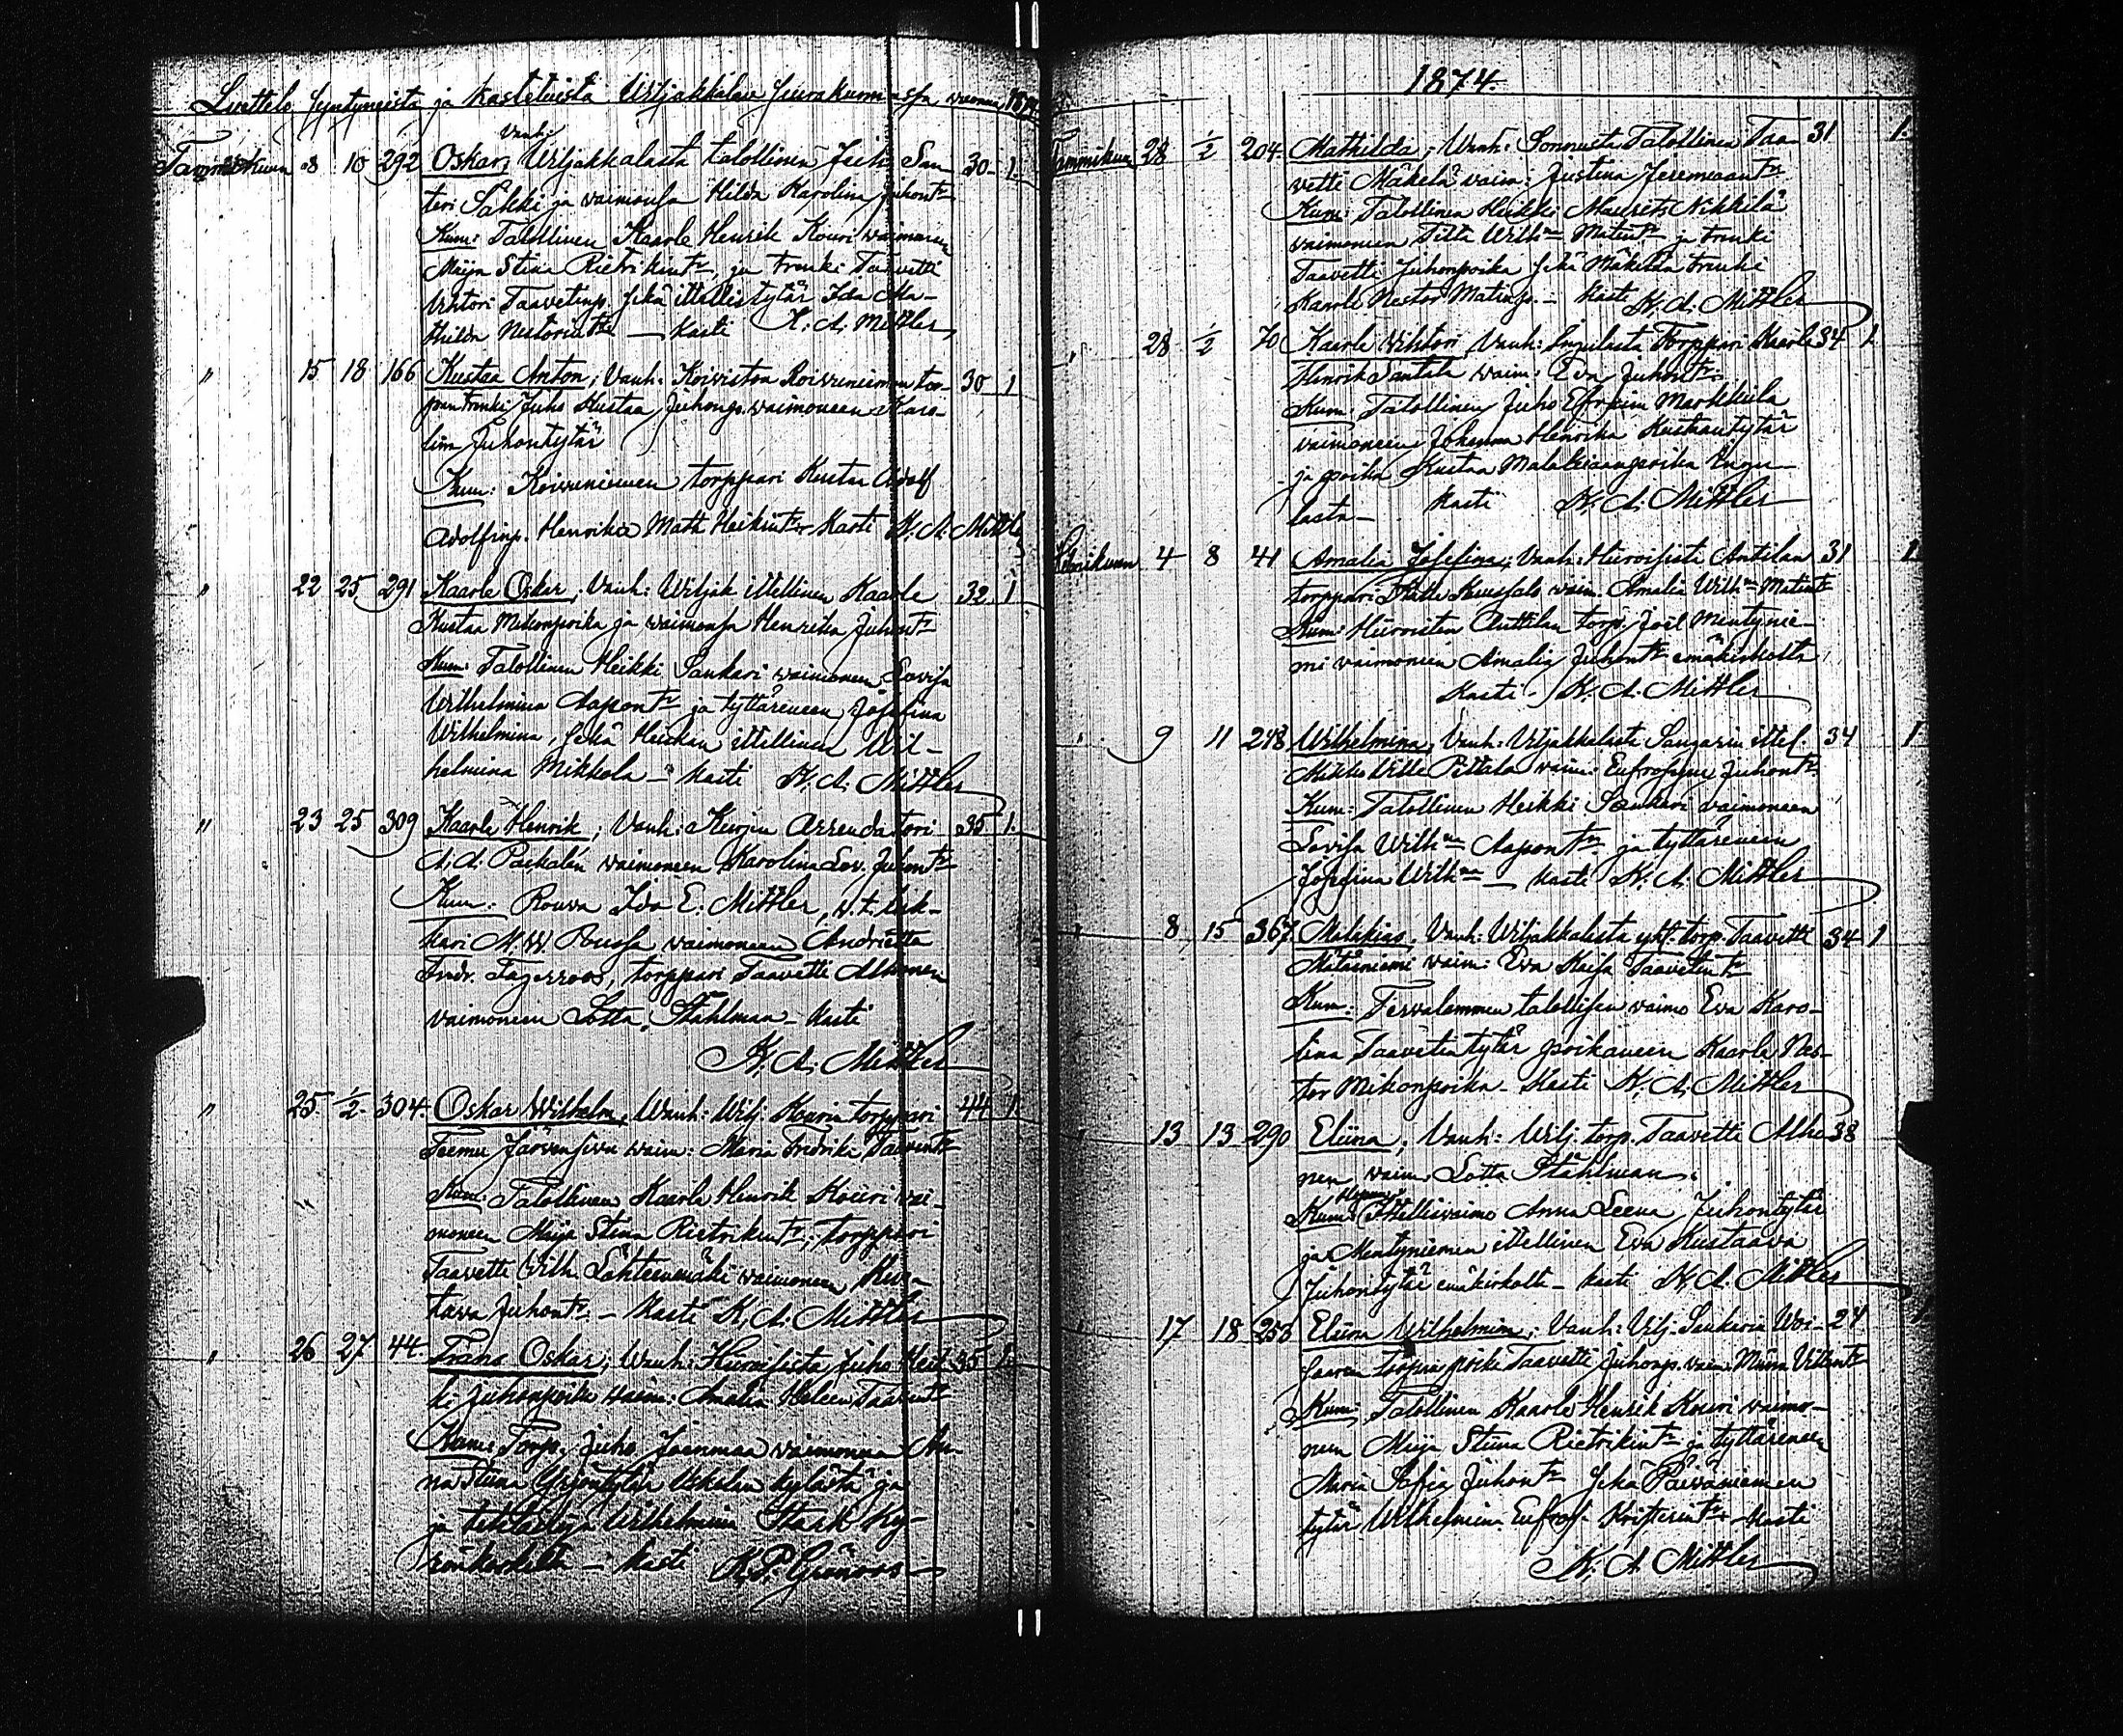 Luettelo syntyneistä ja kastetuista Wiljakkalan seurakunnassa vuonna 1874
Vanh:
Tammikuun 8 10 292 Oskar; Wiljakkalasta talollinen Jsak San- 30 1.
teri Sakki ja vaimonsa Hilda Karolina Juhontr
Kum: Talollinen Kaarle Henrik Kouri vaimoneen
Maija Stina Rietrikintr, ja trenki Taavetti
Vihtori Taavetinp. sekä itsellistytär Ida Ma-
thilda Nestorintr — Kasti K. A. Mittler
" 15 18 166 Kustaa Anton; Vanh: Koiviston Koivuniemen tor- 30 1
pan trenki Juho Kustaa Juhonp. vaimoneen Karo-
lina Juhontytär
Kum: Koivuniemen torppari Kustaa Adolf
Adolfinp. Henrika Math Heikintr Kasti K. A. Mittler
" 22 25 291 Kaarle Oskar; Vanh: Wiljak itsellinen Kaarle 32 1
Kustaa Mikonpoika ja vaimonsa Henrika Juhontr
Kum: Talollinen Heikki Sankari vaimoneen Lovisa
Wilhelmina Aapontr ja tyttäreneen Josefina
Wilhelmina, sekä Heiskan itsellinen Wil-
helmina Mikkola — Kasti K. A. Mittler
" 23 25 309 Kaarle Henrik; Vanh: Kurjen Arrendatori 35 1.
A. A. Packalén vaimoneen Karolina Lov. Juhontr
Kum: Rouva Ida E. Mittler, v. t. luk-
kari M. W. Roussa vaimoneen Andrietta
Fredr. Fagerroos, torppari Taavetti Alhonen
vaimoneen Lotta Ståhlman — Kasti
K. A. Mittler
" 25 1/2 304. Oskar Wilhelm; Vanh: Wilj. Kourin torppari 44 1.
Teemu Järvensivu vaim: Maria Fredrika Taavintr
Kum: Talollinen Kaarle Henrik Kouri vai-
moneen Maija Stina Rietrikintr, torppari
Taavetti Wilh. Lähteenmäki vaimoneen Kus-
tava Juhontr — Kasti K. A. Mittler
" 26 27 44. Frans Oskar; Vanh: Hiiroisista Juho Heik- 35 1.
ki Juhonpoika vaim: Amalia Heleen Taavintr
Kum: Torp. Juho Joenmaa vaimoneen An-
na Stiina Yrjöntytär Uskelan kylästä ja
ja Wilhelmina Stark Ky-
röskoskelta — Kasti K. P. Grönroos
1874.
Tammikuun 28 1/2 204. Mathilda; Vanh: Sonnusta Talollinen Taa- 31 1.
vetti Mäkelä vaim: Justina Jeremiaantr
Kum: Talollinen Heikki Maurits Nikkilä
vaimoneen Tilta Wilhna Matintr ja trenki
Taavetti Juhonpoika sekä Mäkelän trenki
Kaarle Nestor Matinp. — Kasti K. A. Mittler
" 28 1/2 70 Kaarle Wihtori; Vanh: Inkulasta Torppari Kaarle 34 1.
Henrik Santala vaim: Eva Juhontr
Kum: Talollinen Juho Efraim Markkula
vaimoneen Johanna Henrika Kustaantytär
ja poika Kustaa Malakiaanpoika Inku-
lasta — Kasti K. A. Mittler
Helmikuun 4 8 41 Amalia Josefina; Vanh: Hiiroisista Anttilan 31 1.
torppari vaim. Amalia Wilhna Matintr
Kum: Hiiroisten Anttilan torp. Joel Mentynie-
mi vaimoneen Amalia Juhontr emäkirkolta
Kasti — K. A. Mittler
" 9 11 248 Wilhelmina; Vanh: Viljakkalasta Sangarin itsel. 34 1.
Mikko Wille Pittala vaim: Eufrosyne Juhontr
Kum: Talollinen Heikki Sankari vaimoneen
Lovisa Wilhna Aapontr ja tyttäreneen
Josefina Wilhna — Kasti K. A. Mittler
" 8 15 367. Malakias; Vanh: Wiljakkalasta yht. torp. Taavetti 34 1
Mätäsniemi vaim: Eva Kaisa Taavetintr
Kum: Tervalammen talollisen vaimo Eva Karo-
lina Taavetintytär poikaneen Kaarle Nes-
tor Mikonpoika — Kasti K. A. Mittler
" 13 13 290 Eliina; Vanh: Wilj. torp. Taavetti Alho- 38
nen vaim. Lotta Ståhlman.
Kum: Itsellisvaimo Anna Leena Juhontytär
ja Mentyniemen itsellinen Eva Kustaava
Juhontytär emäkirkolta — Kasti K. A. Mittler
" 17 18 253 Eliina Wilhelmina; Vanh: Vilj. Sankarin Woi- 24 1
saaren torpan poika Taavetti Juhonp. vaim. Miina Villentr
Kum: Talollinen Kaarle Henrik Kouri vaimo-
neen Maija Stiina Rietrikintr ja tyttäreneen
Maria Sofia Juhontr sekä Päiväniemen
tytär Wilhelmina Eufros. Kristerintr — Kasti
K. A. Mittler